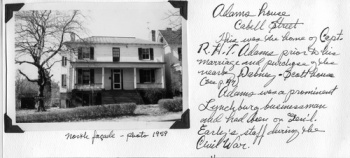 Adams House
Cabell Street
This was the home of Capt.
R. H. T. Adams prior to his
marriage and purchase of the
nearby Dabney - Scott house
Adams was a prominent
Lynchburg businessman
and had been on Genl.
Early's staff during the
Civil War.
North façade - photo 1959